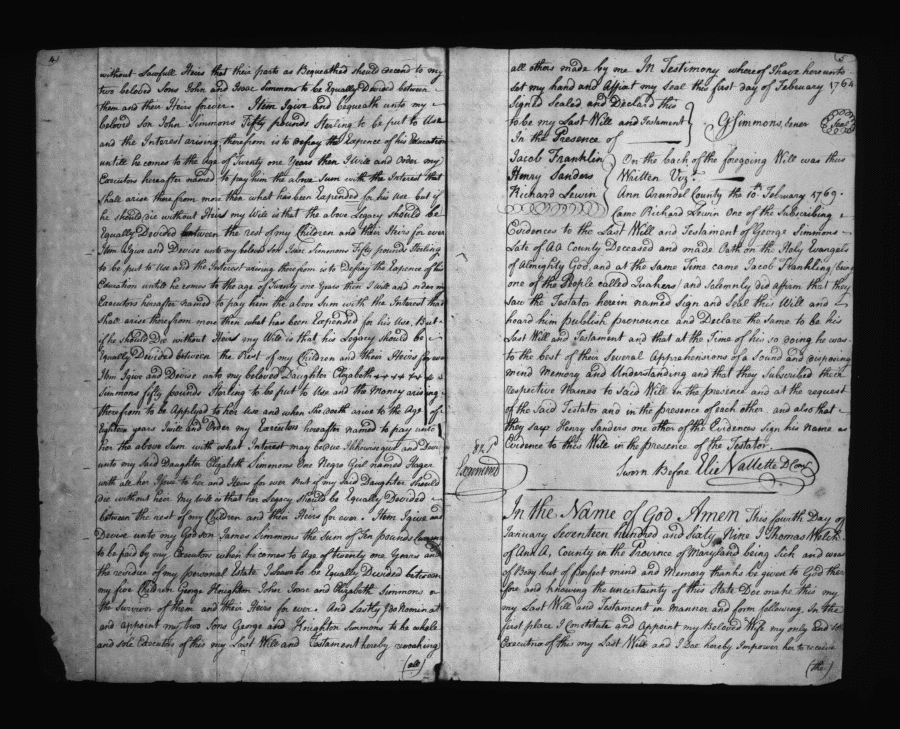 4
without Lawfull Heirs that their parts as Bequeathed should decend to my
two beloved Sons John and Isaac Simmons to be Equally Divided between
them and their Heirs forever. Item I give and bequeath unto my
beloved Son John Simmons Fifty pounds Sterling to be put to Use
and the Interest arising therefrom is to Defray the Expence of his Education
untill he comes to the Age of Twenty one Years then I will and Order my
Executors hereafter named to pay him the above Sum with the Interest that
Shall arise therefrom more then what has been Expended for his Use but if
he should die without Heirs my Wile is that the above Legacy should be
Equally Divided between the rest of my Children and their Heirs for ever
Item I give and Devise unto my beloved Son Isaac Simmons Fifty pounds Sterling
to be put to Use and the Interest arising therefrom is to Defray the Expence of his
Education untill he comes to the age of Twenty one Years then I will and order my
Executors hereafter named to pay him the above Sum with the Interest that
Shall arise therefrom more then what has been Expended for his Use, But
if he should Die without Heirs my Will is that his Legacy should be
Equally Divided between the Rest of my Children and their Heirs for ever
Item I give and Devise unto my beloved Daughter Elizabeth
Simmons fifty pounds Sterling to be put to Use and the Money arising
therefrom to be Applyed to her Use and when She doth arive to the Age of
Eighteen years I will and Order my Executors hereafter named to pay unto
her the above Sum with what Interest may be due Likewise I give and Devise
unto my Said Daughter Elizabeth Simmons One Negro Girl named Hagar
with all her Increase to her and Heirs for ever But if my Said Daughter should
die without heir My will is that her Legacy should be Equally Divided
between the rest of my Children and their Heirs for ever. Item I give and
Devise unto my Godson James Simmons the Sum of Ten pounds
to be paid by my Executors when he comes to Age of twenty one Years and
the residue of my personal Estate I leave to be Equally Divided between
my five Children George Knighton John Isaac and Elizabeth Simmons or
the Survivor of them and their Heirs for ever. And Lastly I do Nominat
and appoint my two Sons George and Knighton Simmons to be whole
and sole Executors of this my Last Will and Testament hereby revoaking
(all)
82
Examined
5
all others made by me In Testimony whereof I have hereunto
set my hand and Affixt my Seal this first day of February 1764
Signed Sealed and Declard this
to be my Last Will and Testament
G Simmons, Sener
Seal
In the Presence of
Jacob Franklin
Henry Sanders
Richard Lewin
On the back of the foregoing Will was thus
Written Vizt.
Ann Arundel County the 10 February 1769.
Came Richard Lewin One of the Subscribing
Evidences to the Last Will and Testament of George Simmons
Late of AA County Deceased and made Oath on the Holy Evangels
of Almighty God, and at the Same Time came Jacob Frankling (being
one of the People called Quakers) and Solemnly did affirm that they
saw the Testator herein named Sign and Seal this Will and
heard him publish pronounce and Declare the same to be his
Last Will and Testament and that at the Time of his so doing he was
to the best of their Several Apprehensions of a Sound and disposing
mind Memory and Understanding and that they Subscribed their
respective Names to Said Will in the presence and at the request
of the Said Testator and in the presence of each other and also that
they Say Henry Sanders one other of the Evidences Sign his Name as
Evidence to this Will in the presence of the Testator
Sworn Before Elie Vallette D Comy
In the Name of God Amen This fourth Day of
January Seventeen hundred and sixty Nine I Thomas Welsh
of Ann A, County in the Province of Maryland being Sick and weak
of Body but of perfect mind and Memory thanks be given to God there
fore and knowing the uncertainty of this State Doe make this my
my Last Will and Testament in manner and form following. In the
first place I Constitute and Appoint my Beloved Wife my only and sole
Executrix of this my Last Will and I Doe hereby Impower her to receive
(the)